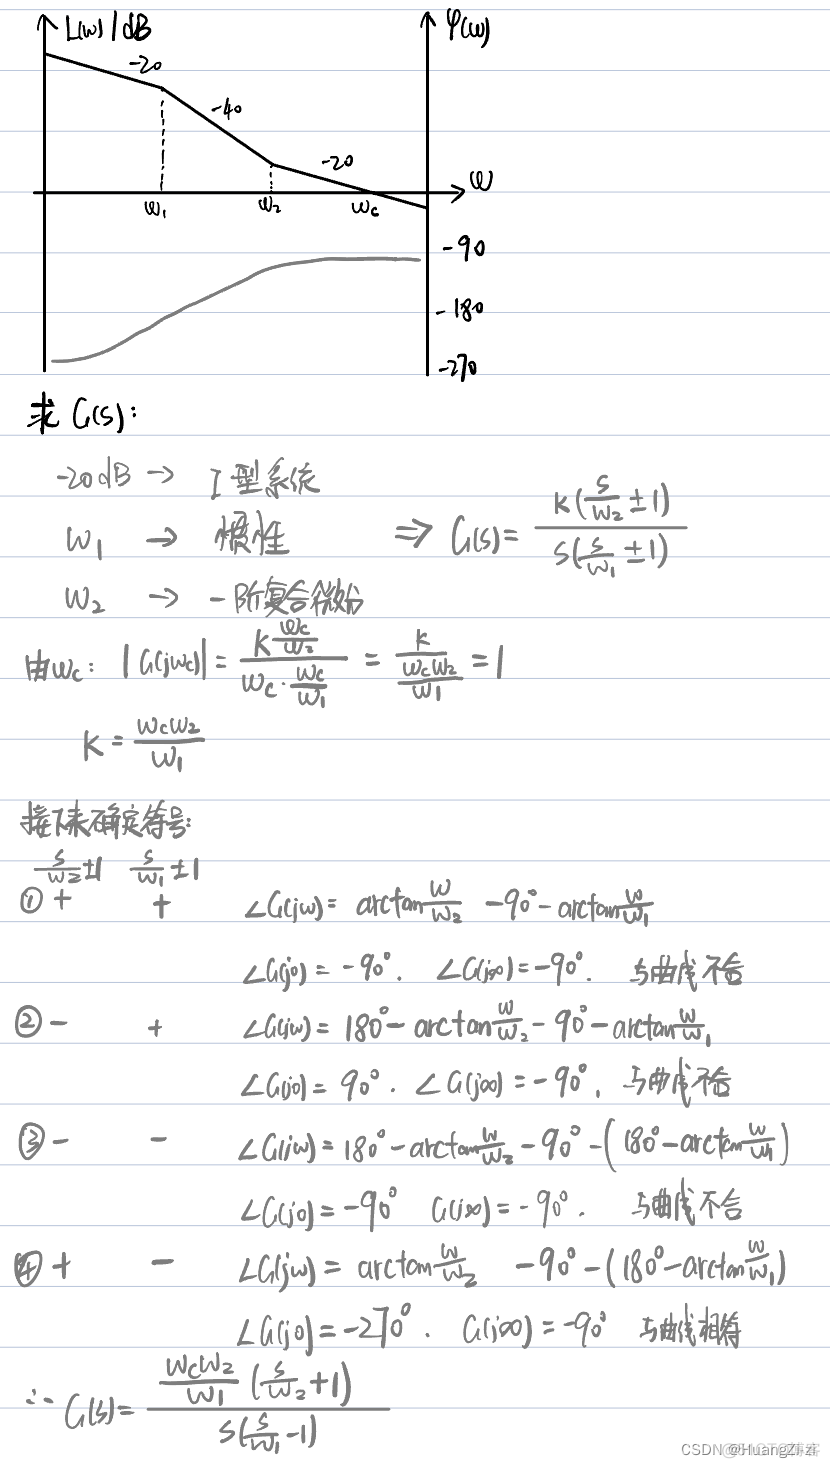 L(w)/dB φ(w)
-20
-40
-20
w₁ w₂ wc w
-90
-180
-270
求 G(s):
-20dB → I型系统
w₁ → 惯性 ⇒ G(s)= K(s/w₂ ±1) / s(s/w₁ ±1)
w₂ → 一阶复合微分
由wc: |G(jwc)| = (K wc/w₂) / (wc·wc/w₁) = K / (wcw₂/w₁) = 1
K = wcw₂/w₁
接下来确定符号:
s/w₂ ±1 s/w₁ ±1
① + + ∠G(jw)= arctan w/w₂ -90°- arctan w/w₁
∠G(j0) = -90°. ∠G(j∞)=-90°. 与曲线不合
② - + ∠G(jw)= 180°- arctan w/w₂ - 90°- arctan w/w₁
∠G(j0) = 90°. ∠G(j∞) = -90°, 与曲线不合
③ - - ∠G(jw)= 180°- arctan w/w₂ - 90° -(180°- arctan w/w₁)
∠G(j0) = -90° G(j∞) = -90°. 与曲线不合
④ + - ∠G(jw) = arctan w/w₂ -90°-(180°-arctan w/w₁)
∠G(j0) = -270°. G(j∞) = -90° 与曲线相符
∴ G(s)= wcw₂/w₁ (s/w₂ +1) / s(s/w₁ -1)
CSDN @HuangZi.zi